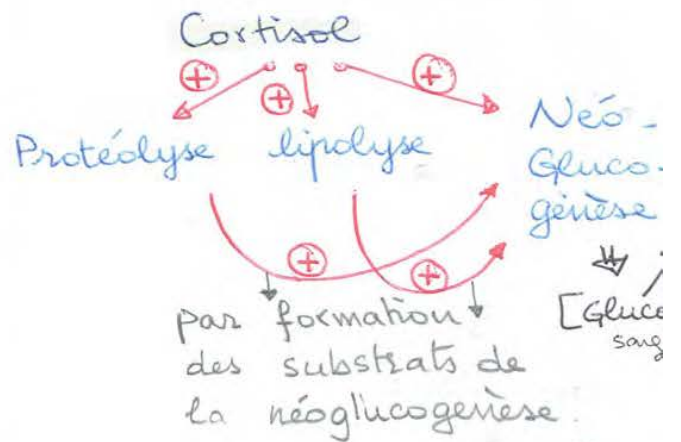 Cortisol
+ + +
Protéolyse lipolyse Néo-
Gluco-
génèse
+ +
par formation
des substrats de
la néoglucogenèse.
[Gluco
sang